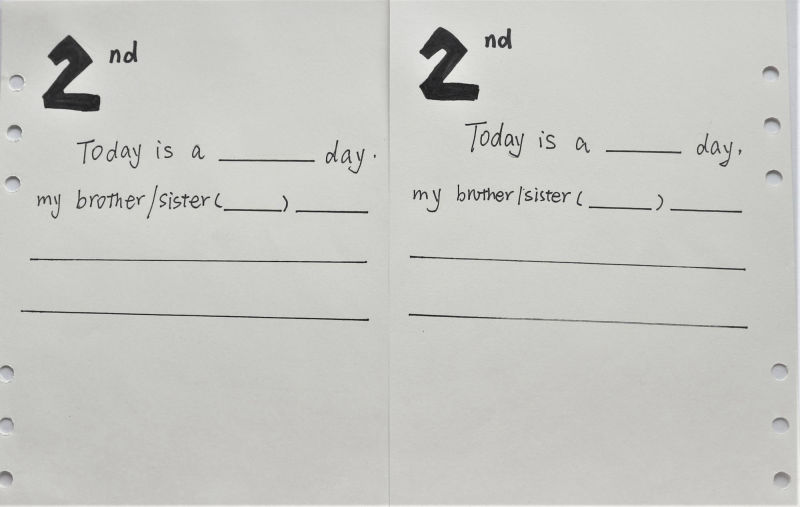 2nd
Today is a ______ day.
my brother/sister(____) _____
2nd
Today is a _____ day.
my brother/sister(____) _____